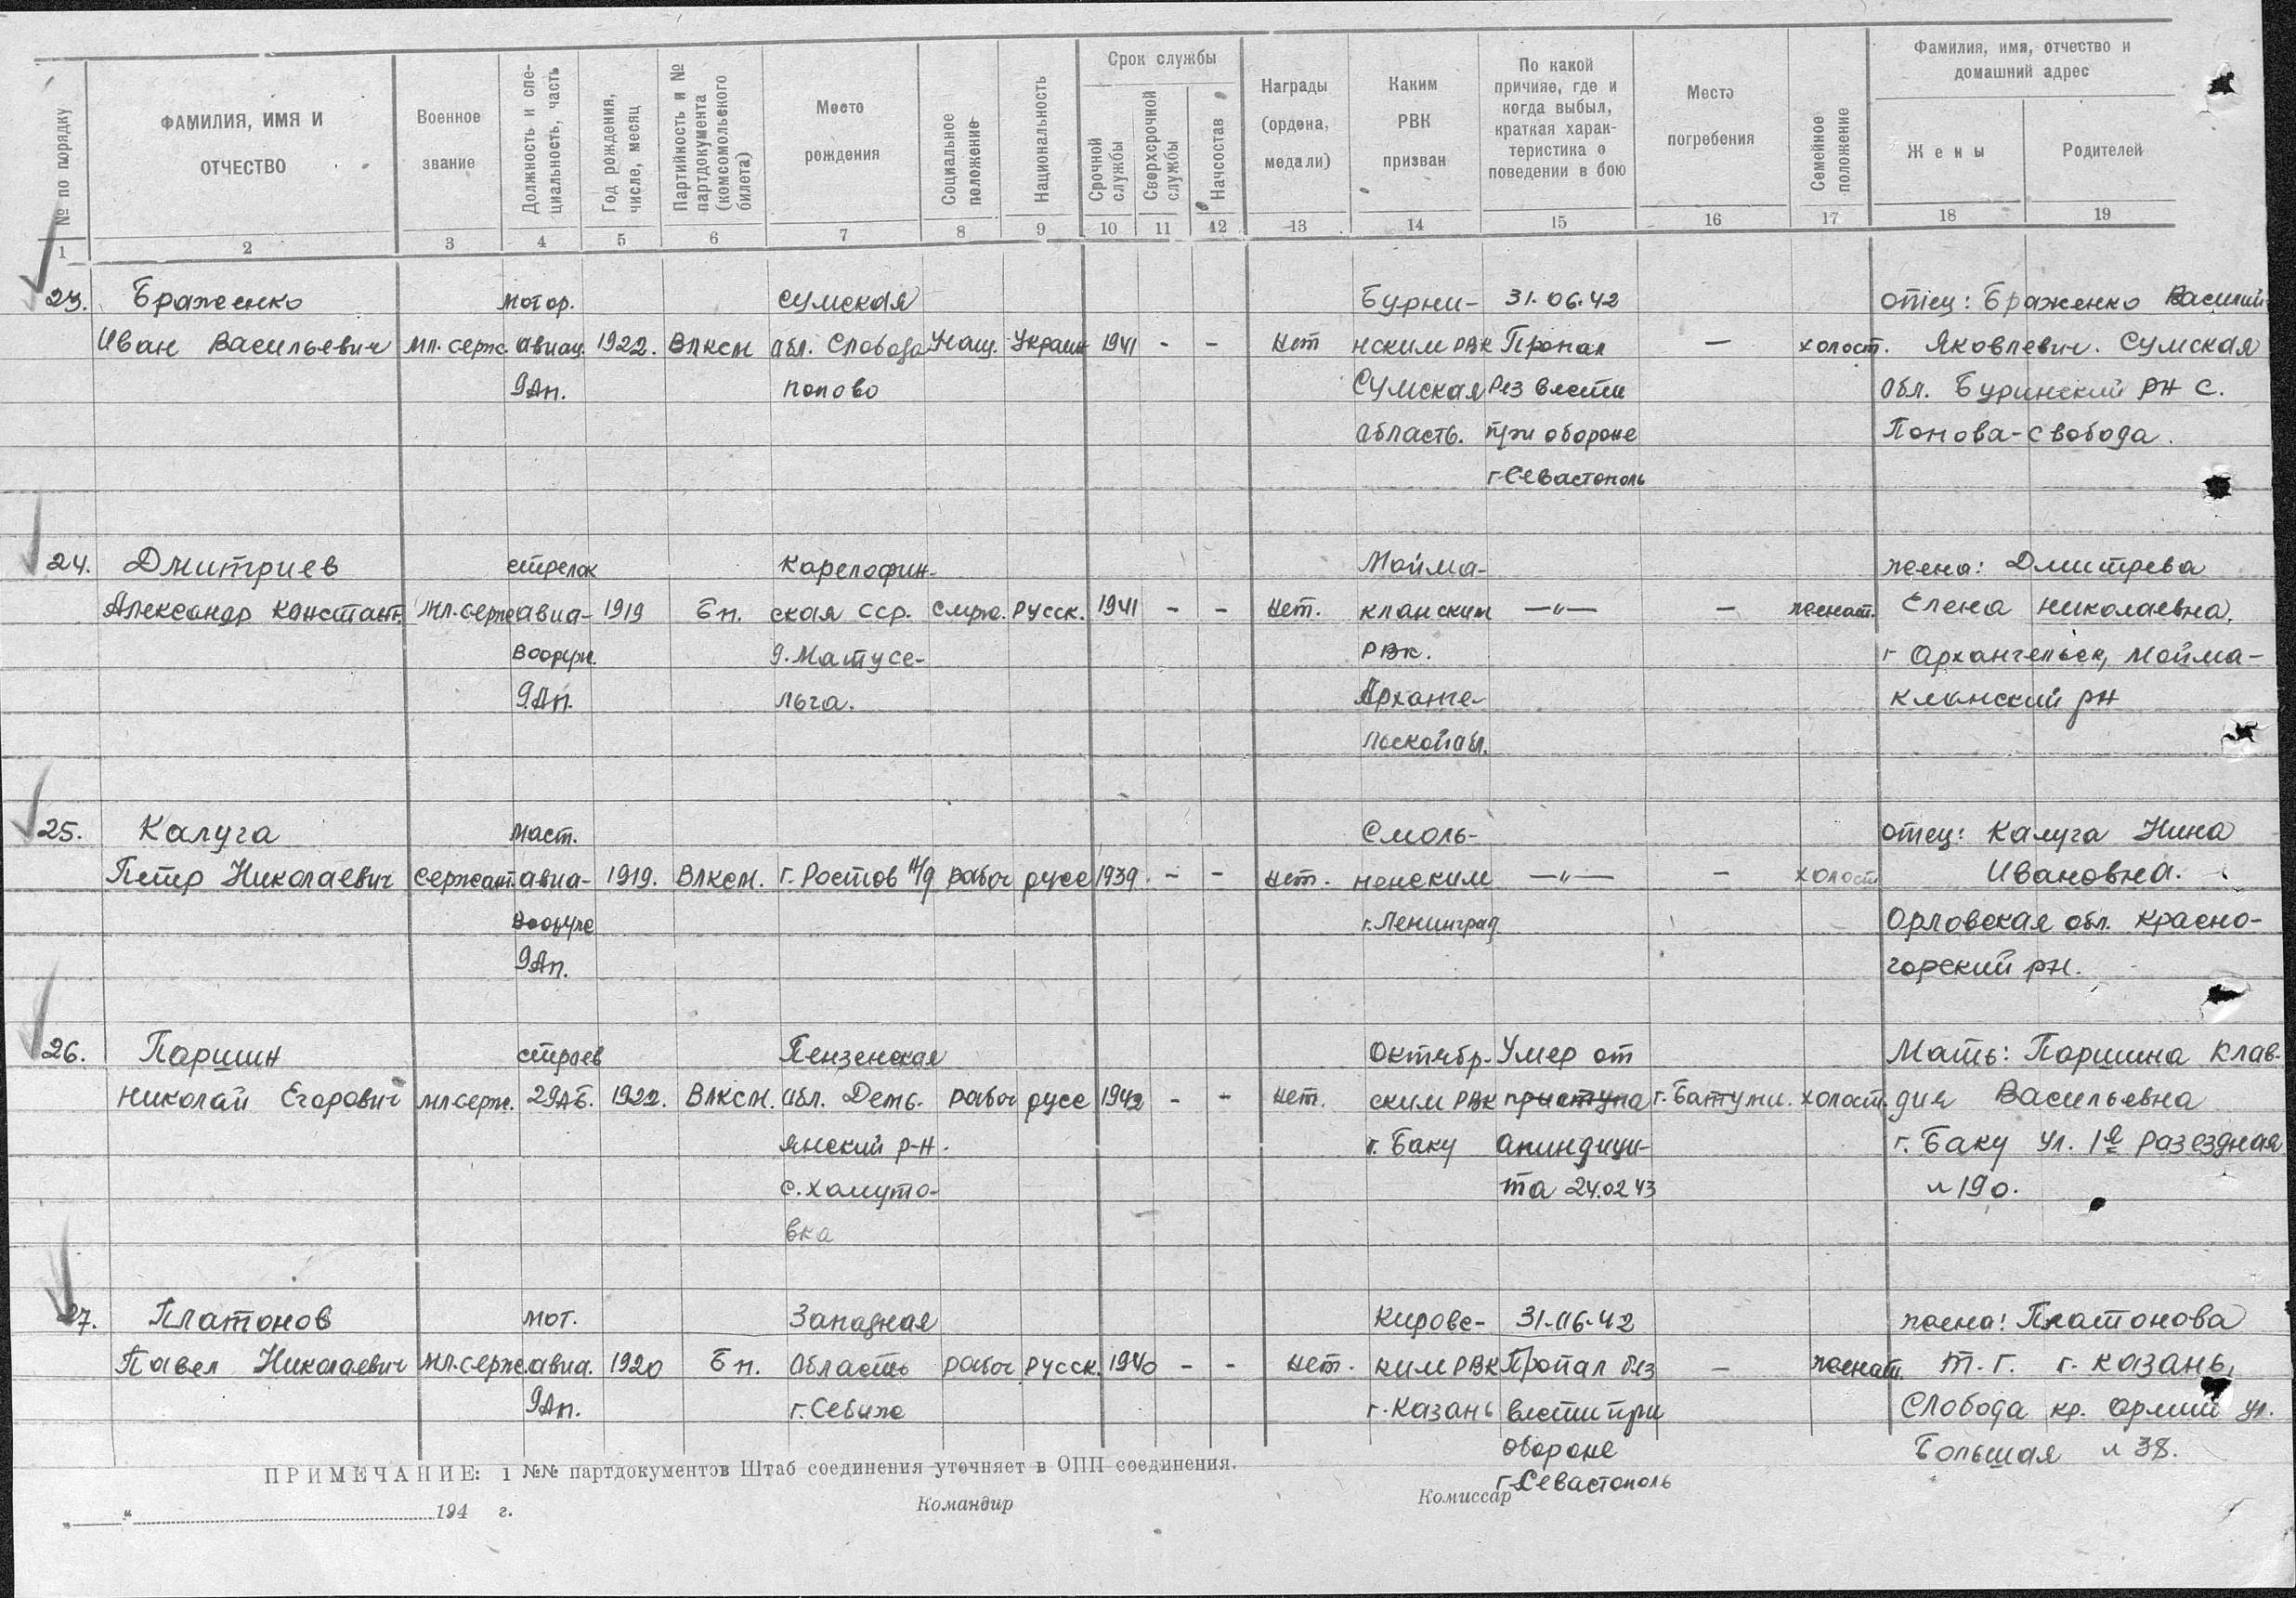 № по порядку
ФАМИЛИЯ, ИМЯ И
ОТЧЕСТВО
Военное
звание
Должность и спе-
циальность, часть
Год рождения,
число, месяц
Партийность и №
партдокумента
(комсомольского
билета)
Место
рождения
Социальное
положение
Национальность
Срок службы
Срочной
службы
Сверхсрочной
службы
Начсостав
Награды
(ордена,
медали)
Каким
РВК
призван
По какой
причине, где и
когда выбыл,
краткая харак-
теристика о
поведении в бою
Место
погребения
Семейное
положение
Фамилия, имя, отчество и
домашний адрес
Жены
Родителей
1 2 3 4 5 6 7 8 9 10 11 12 13 14 15 16 17 18 19
23. Браженко мотор. Сумская Бурин- 31.06.42 отец: Браженко Василий
Иван Васильевич мл. серж. авиац. 1922. ВЛКСМ обл. Слобода Учащ. Украин 1941 - - нет нским РВК Пропал — холост. Яковлевич. Сумская
9Ап. Попово Сумская без вести обл. Буринский РН С.
область. при обороне Попова-Свобода.
г. Севастополь
24. Дмитриев стрелок Карелофин- Майма- жена: Дмитрева
Александр Констант. мл. серж авиа- 1919 Бп. ская сср. служ. русск. 1941 - - нет. кланским —"— — женат. Елена Николаевна,
вооруж. д. Матусе- РВК. г Архангельск, Майма-
9.Ап. льга. Арханге- кланский РН
льской обл.
25. Калуга маст. Смоль- отец: Калуга Нина
Петр Николаевич сержант. авиа- 1919. ВЛКСМ. г. Ростов н/д рабоч русс 1939. - - нет. ненским —"— — холост Ивановна.
вооруж г. Ленинград Орловская обл. Красно-
9Ап. горский РН.
26. Паршин строев Пензенская Октябр- Умер от Мать: Паршина Клав-
Николай Егорович мл. серж. 29АБ. 1922. ВЛКСМ. обл. Демь- рабоч русс 1942 - - нет. ским РВК приступа г. Батуми. холост. дия Васильевна
янский р-н. г. Баку апиндици- г. Баку ул. 1я Разездная
с. Хомуто- та 24.02 43 н 190.
вка
27. Платонов мот. Западная Кировс- 31.06.42 жена: Платонова
Павел Николаевич мл. серж. авиа. 1920 Бп. Область рабоч русск. 1940 - - нет. ким РВК Пропал без — женат. Т. Г. г. Казань,
9Ап. г. Себиж г. Казань вести при Слобода кр. Армии ул.
обороне Большая н 38.
г. Севастополь
ПРИМЕЧАНИЕ: 1 №№ партдокументов Штаб соединения уточняет в ОПП соединения.
„ “ 194 г. Командир Комиссар